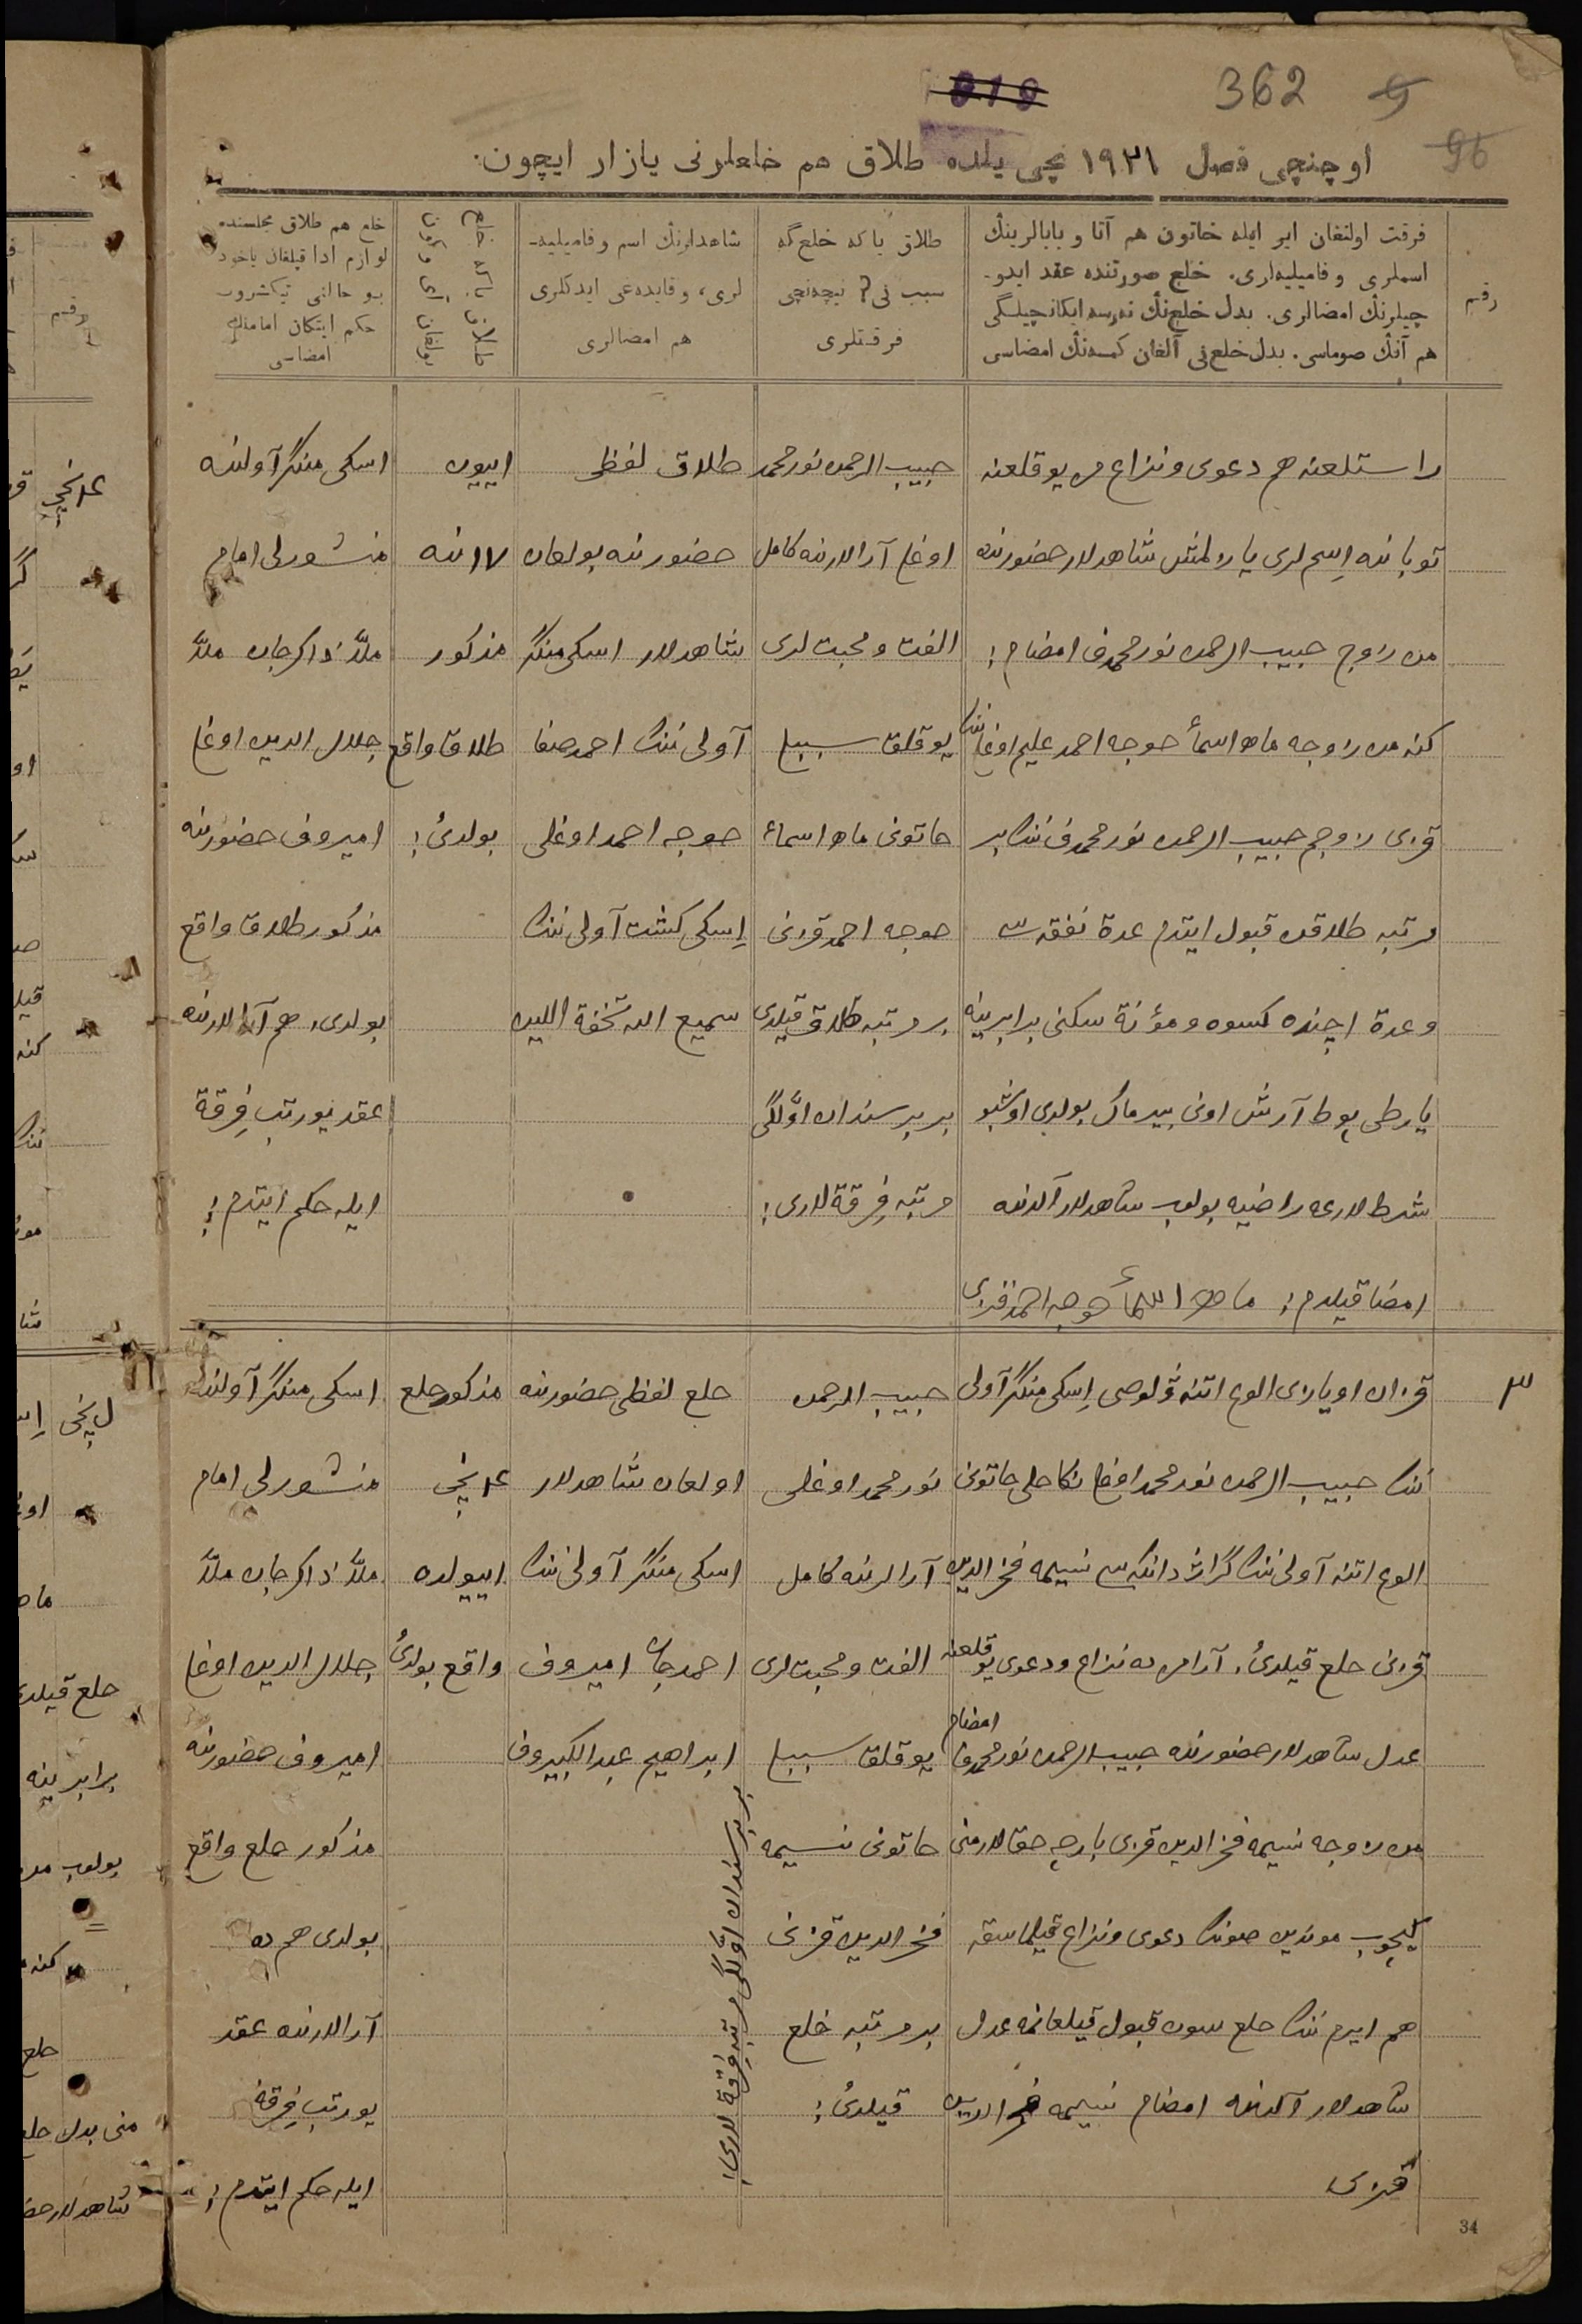 362
96
اوچنچی فصل ١٩٢١ نچی یلده طلاق هم خلعلرنی یازار ایچون.
رقم
فرقت اولنغان ایر ایله خاتون هم آتا و بابالرینڭ
اسملری و فامیلیه‌لری. خلع صورتنده عقد ایدو-
چیلرنڭ امضالری. بدل خلع‌نڭ نەرسه ایکانچیلگی
هم آنڭ صوماسی. بدل خلع‌نی آلغان کمسه‌نڭ امضاسی
طلاق یا که خلع گه
سبب نی؟ نیچه‌نچی
فرقتلری
شاهدلرنڭ اسم و فامیلیه-
لری، و قایده‌غی ایدکلری
هم امضالری
خلع هم طلاق مجلسنده
لوازم ادا قیلغان یاخود
بو حالنی تیکشروب
حکم ایتکان امامنڭ
امضاسی
راستلعنه هم دعوی و نزاع م یوقلعنه
توبانده اسم لری یازلمش شاهدلار حضورنده
من زوج حبیب الرحمن نورمحمدف امضام؛
کنه من زوجه ماه اسمأ خوجه احمد علیم اوغلی ننک
قزی زوجم حبیب الرحمن نورمحمدف ننک بر
مرتبه طلاقن قبول ایتدم عدة نفقه سی
و عدة اچنده کسوه و مؤنة سکنی برابرینه
یارطی پوط آرش اونی بیرماک بولدی اوشبو
شرط لارغه راضیه بولوب شاهدلار آلدنده
امضا قیلدم؛ ماه اسمأ خوجه احمد قزی
حبیب الرحمن نورمحمد
اوغلی آرالارنده کامل
الفت و محبت لری
یوقلق سببلی
خاتونی ماه اسماء
خوجه احمد قزنی
بر مرتبه طلاق قیلدی
بر برسندان اوّلگی
مرتبه فرقة لاری؛
طلاق لفظی
حضورنده بولغان
شاهدلار اسکی منگر
آولی ننک احمد صفا
خوجه احمد اوغلی
اسکی کشت آولی ننک
سمیع الله تحفة اللین
اییون
١٧ نده
مذکور
طلاق واقع
بولدیُ؛
اسکی منگر آولنده
منشورلی امام
ملّا ذاکرجان ملّا
جلال الدین اوغلی
امیروف حضورنده
مذکور طلاق واقع
بولدی، هم آرالارنده
عقد یورتب فرقة
ایله حکم ایتدم؛
٣
قزان اویازی الوغ اتنه وُلوصی اسکی منگر آولی
ننک حبیب الرحمن نورمحمد اوغلی نکاحلی خاتونی
الوغ اتنه آولی ننک گراژدانیکه سی نسیمه فخرالدین
قزنی خلع قیلدیُ، آرامزده نزاع و دعوی یوقلعنه
عدل شاهدلار حضورنده حبیب الرحمن نورمحمدف امضام
من زوجه نسیمه فخرالدین قزی بارچه حقلارمنی
کیچوب موندین صونک دعوی و نزاع قیلماسقه
هم ایرم ننک خلع سون قبول قیلغانمه عدل
شاهدلار آلدنده امضام نسیمه فخرالدین
قزی
حبیب الرحمن
نورمحمد اوغلی
آرالرنده کامل
الفت و محبت لری
یوقلق سببلی
خاتونی نسیمه
فخرالدین قزنی
بر مرتبه خلع
قیلدیُ؛
بر برسندان اوّلگی مرتبه فرقة لاری؛
خلع لفظی حضورنده
اولغان شاهدلار
اسکی منگر آولی ننک
احمدجان امیروف
ابراهیم عبدالکبیروف
مذکور خلع
٤ نچی
اییولده
واقع بولدیُ
اسکی منگر آولنده
منشورلی امام
ملّا ذاکرجان ملّا
جلال الدین اوغلی
امیروف حضورنده
مذکور خلع واقع
بولدی هم ده
آرالارنده عقد
یورتب فرقة
ایله حکم ایتدم؛
34